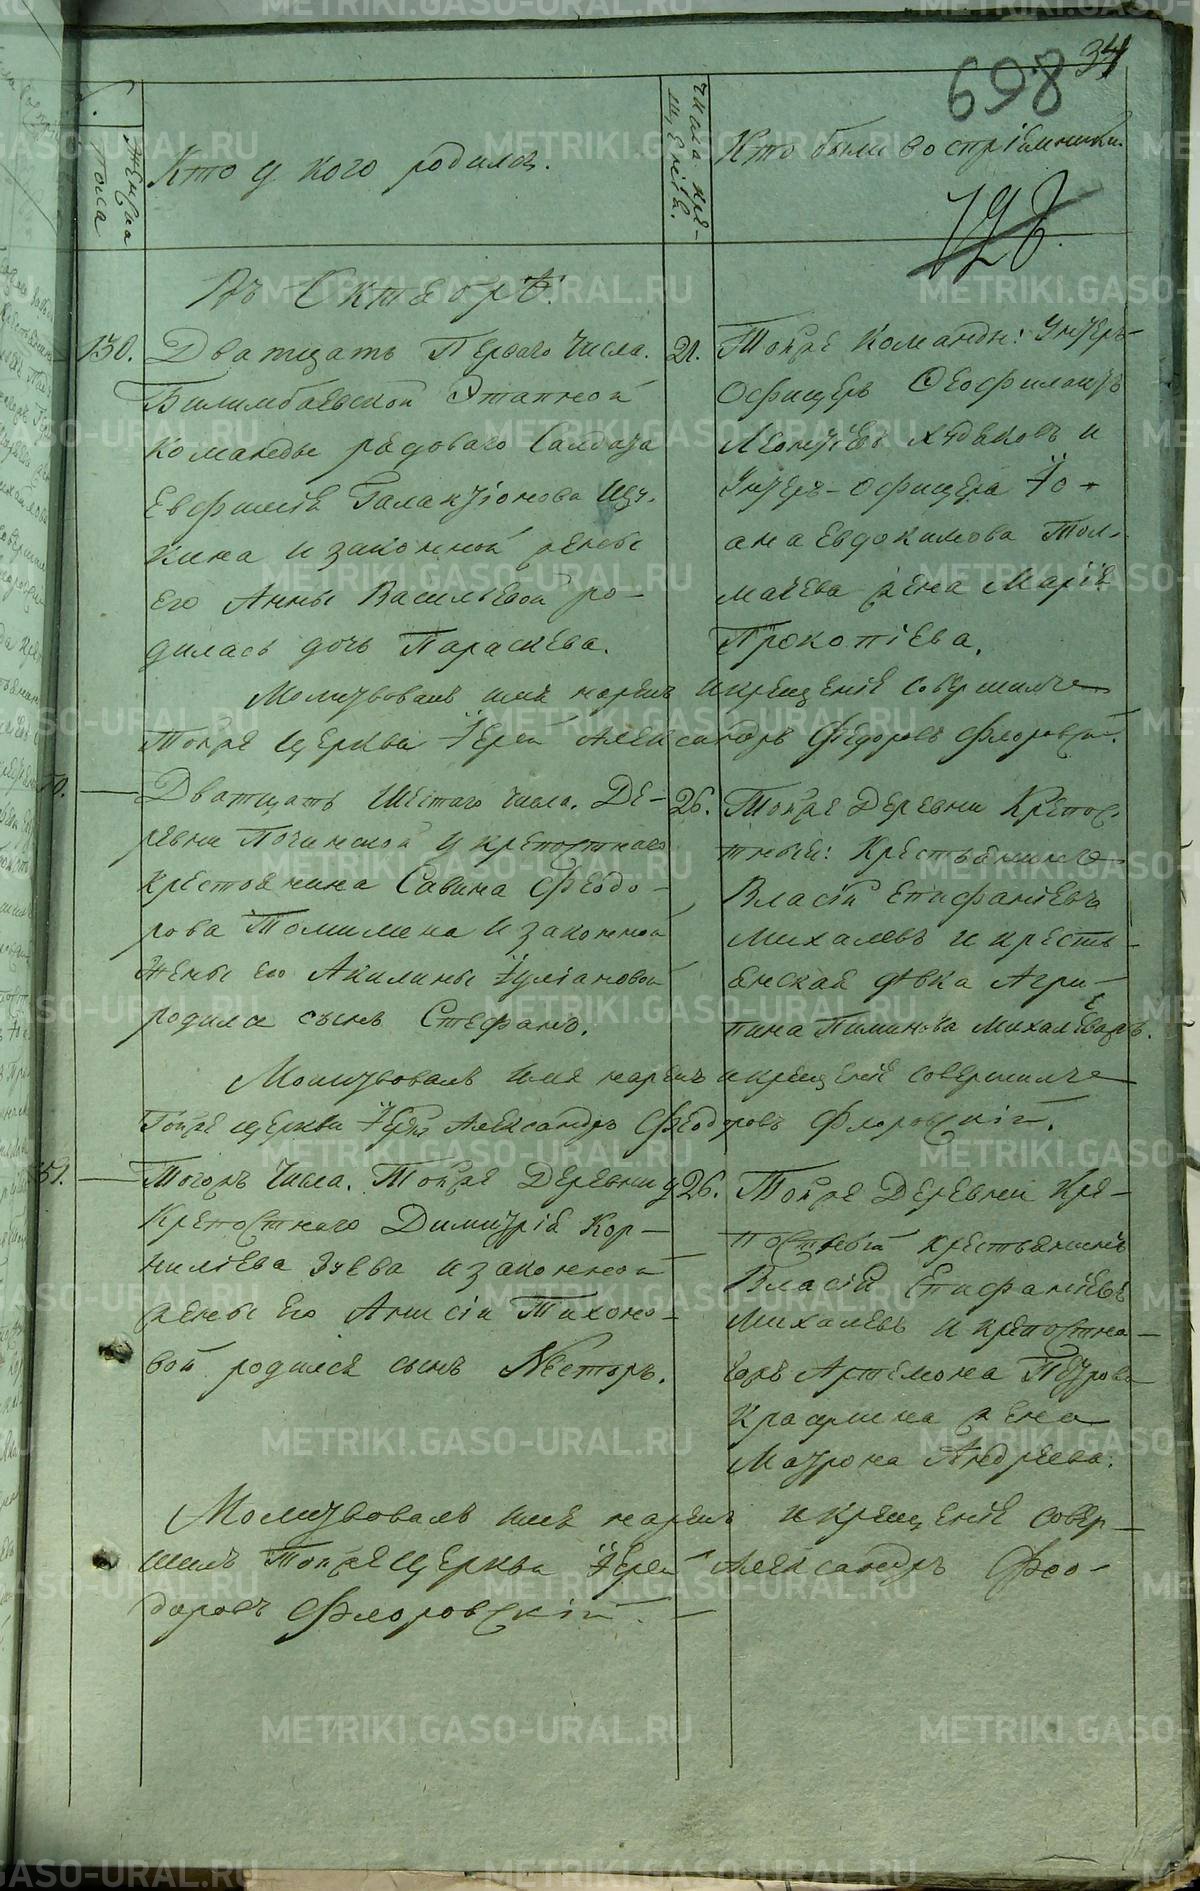 34
698
Женска
пола
Кто у кого родился.
Числа кре-
щенiя.
Кто были воспрiемники.
128.
Въ Октябрѣ.
130.
Дватцать Перваго Числа.
Билимбаевской Этапной
Команды рядоваго Салдата
Евфимiя Галактiонова Щу-
кина и законной жены
его Анны Васильевой ро-
дилась дочь Параскева.
21.
Тойже Команды: Унтеръ-
Офицеръ Феофилактъ
Леонтiевъ Худяковъ и
Унтеръ-Офицера Iо-
ана Евдокимова Тол-
мачева жена Марiя
Прокопiева.
Молитвовалъ имя нарекъ и крещенiе совершилъ
Тойже Церкви Iерей Александръ Федоровъ Флоровскiй.
Дватцать Шестаго Числа. Де-
ревни Починской у крепостнаго
крестьянина Савина Феодо-
рова Томилина и законной
жены его Акилины Iулiановой
родился сынъ Стефанъ.
26.
Тойже Деревни Крепос-
тный: Крестьянинъ
Власiй Епифанiевъ
Михалевъ и кресть-
янская дѣвка Агри-
пина Пиминова Михалева
Молитвовалъ имя нарекъ и крещенiе совершилъ
Тойже церкви Iерей Александръ Феодоровъ Флоровскiй.
Тогожъ Числа. Тойже Деревни у
Крепостнаго Димитрiя Кор-
нилiева Зуева и законной
жены его Анисiи Тихоно-
вой родился сынъ Несторъ.
26.
Тойже Деревни Кре-
постный крестьянинъ
Власiй Епифанiевъ
Михалевъ и крепостна-
гожъ Артемона Петрова
жена
Матрона Андреева.
Молитвовалъ имя нарекъ и крещенiе совер-
шилъ Тойже Церкви Iерей Александръ Фео-
доровъ Флоровскiй.
METRIKI.GASO-URAL.RU